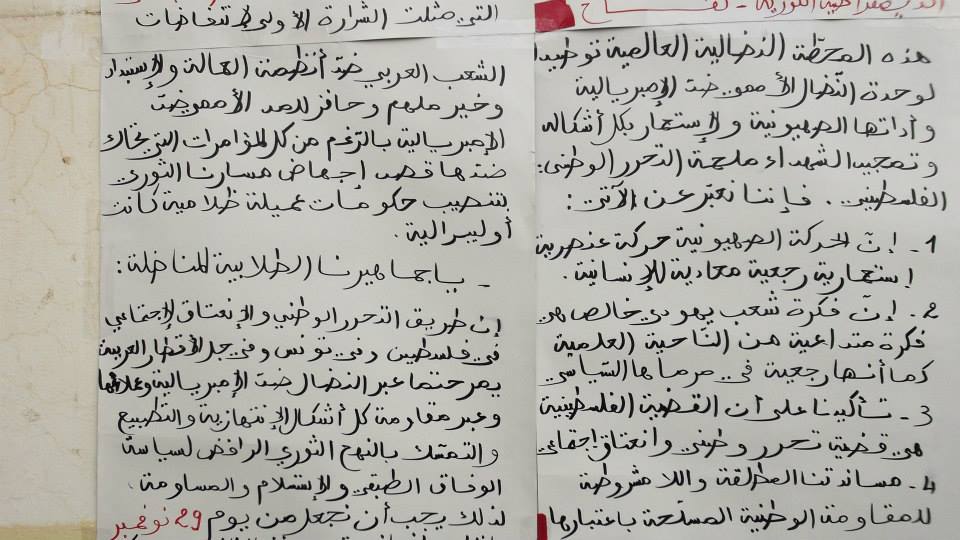 هذه المحطة النضالية العالمية توطيدا
لوحدة النضال الأممي ضد الإمبريالية
وأداتها الصهيونية والإستعمار بكل أشكاله
وتمجيد الشهداء ملحمة التحرر الوطني
الفلسطيني. فإننا نعبّر عن الآتي:
1- إنّ الحركة الصهيونية حركة عنصرية
إستعمارية رجعية معادية للإنسانية.
2. إنّ فكرة شعب يهودي خالص هي
فكرة متداعية من النّاحية العلمية
كما أنها رجعية في مرماها السّياسي
3- تأكيدنا على أن القضية الفلسطينية
هي قضية تحرر وطني وانعتاق اجتماعي
4- مساندتنا المطلقة واللا مشروطة
للمقاومة الوطنية المسلّحة باعتبارها
التي مثلت الشرارة الأولى لانتفاضات
الشعب العربي ضدّ أنظمة العمالة والإستبداد
وخير ملهم وحافز للمد الأممي ضدّ
الإمبريالية بالرّغم من كل المؤامرات التي تحاك
ضدها قصد إجهاض مسارنا الثوري
بتنصيب حكومات عميلة ظلامية كانت
أو ليبرالية.
- ياجماهيرنا الطلابية المناضلة:
إن طريق التحرر الوطني والإنعتاق الإجتماعي
في فلسطين وفي تونس وفي جل الأقطار العربية
يمر حتما عبر النضال ضدّ الإمبريالية وعملائها
وعبر مقاومة كل أشكال الإنتهازية والتطبيع
والتمسّك بالنهج الثوري الرافض لسياسة
الوفاق الطبقي والإستسلام والمساومة.
لذلك يجب أن نجعل من يوم 29 نوفمبر